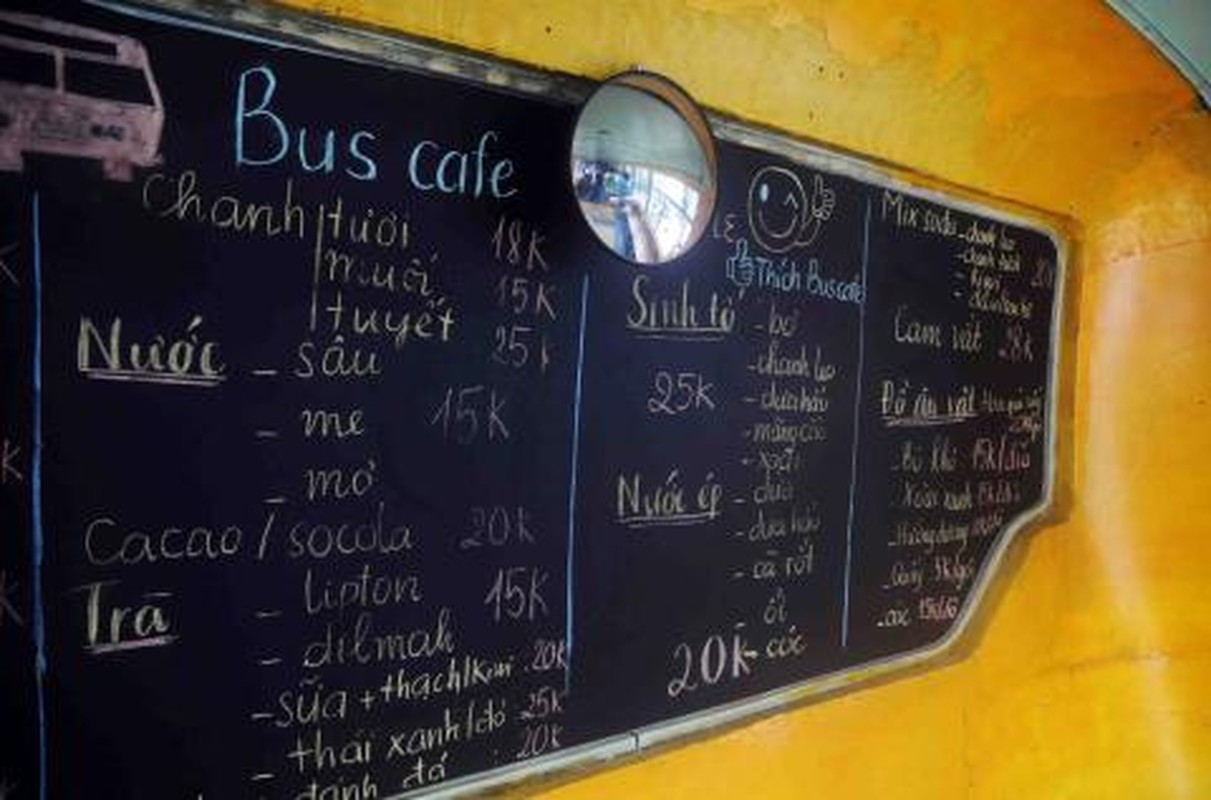 Bus cafe
Chanh tươi 18K
muối 15K
tuyết 25K
Nước - sấu
- me 15K
- mơ
Cacao / socola 20K
Trà - lipton 15K
- dilmah
- sữa + thạch/kiwi 20K
- thái xanh/đỏ 25K
- đánh đá 20K
Thích Bus cafe
Sinh tố - bơ
- chanh leo
25K - dưa hấu
- mãng cầu
- xoài
Nước ép - dứa
- dưa hấu
- cà rốt
- ổi
20K - cóc
Mix soda - chanh leo
Cam vắt 28K
Đồ ăn vặt
- Bò khô 15K/đĩa
- Xoài xanh
- Hướng dương
- Quẩy 5K/gói